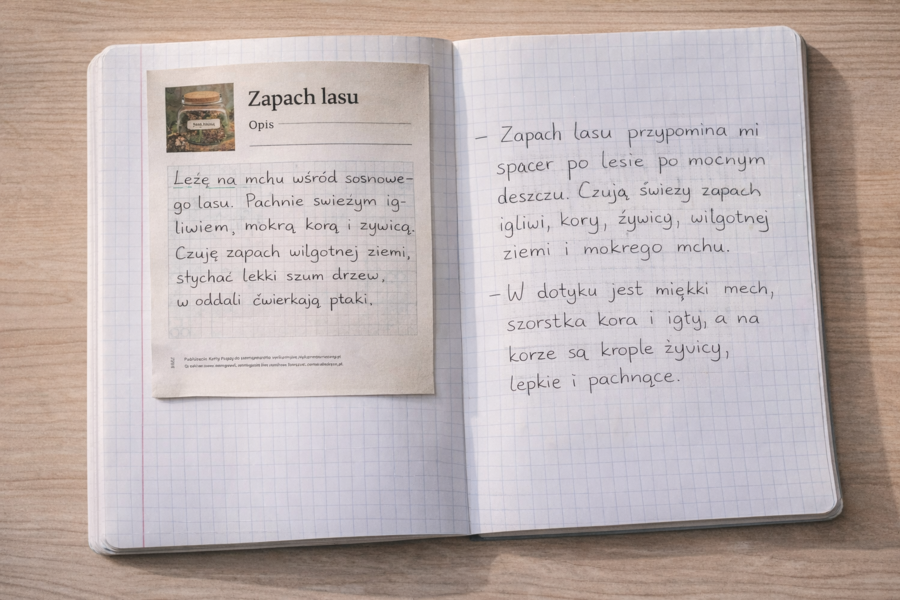 Zapach lasu
Opis
Leżę na mchu wśród sosnowe-
go lasu. Pachnie swieżym ig-
liwiem, mokrą korą i zywicą.
Czuję zapach wilgotnej ziemi,
stychać lekki szum drzew,
w oddali ćwierkają ptaki.
– Zapach lasu przypomina mi
spacer po lesie po mocnym
deszczu. Czują świeży zapach
igliwi, kory, źywicy, wilgotnej
ziemi i mokrego mchu.
– W dotyku jest miękki mech,
szorstka kora i igty, a na
korze są krople żyvicy,
lepkie i pachnące.